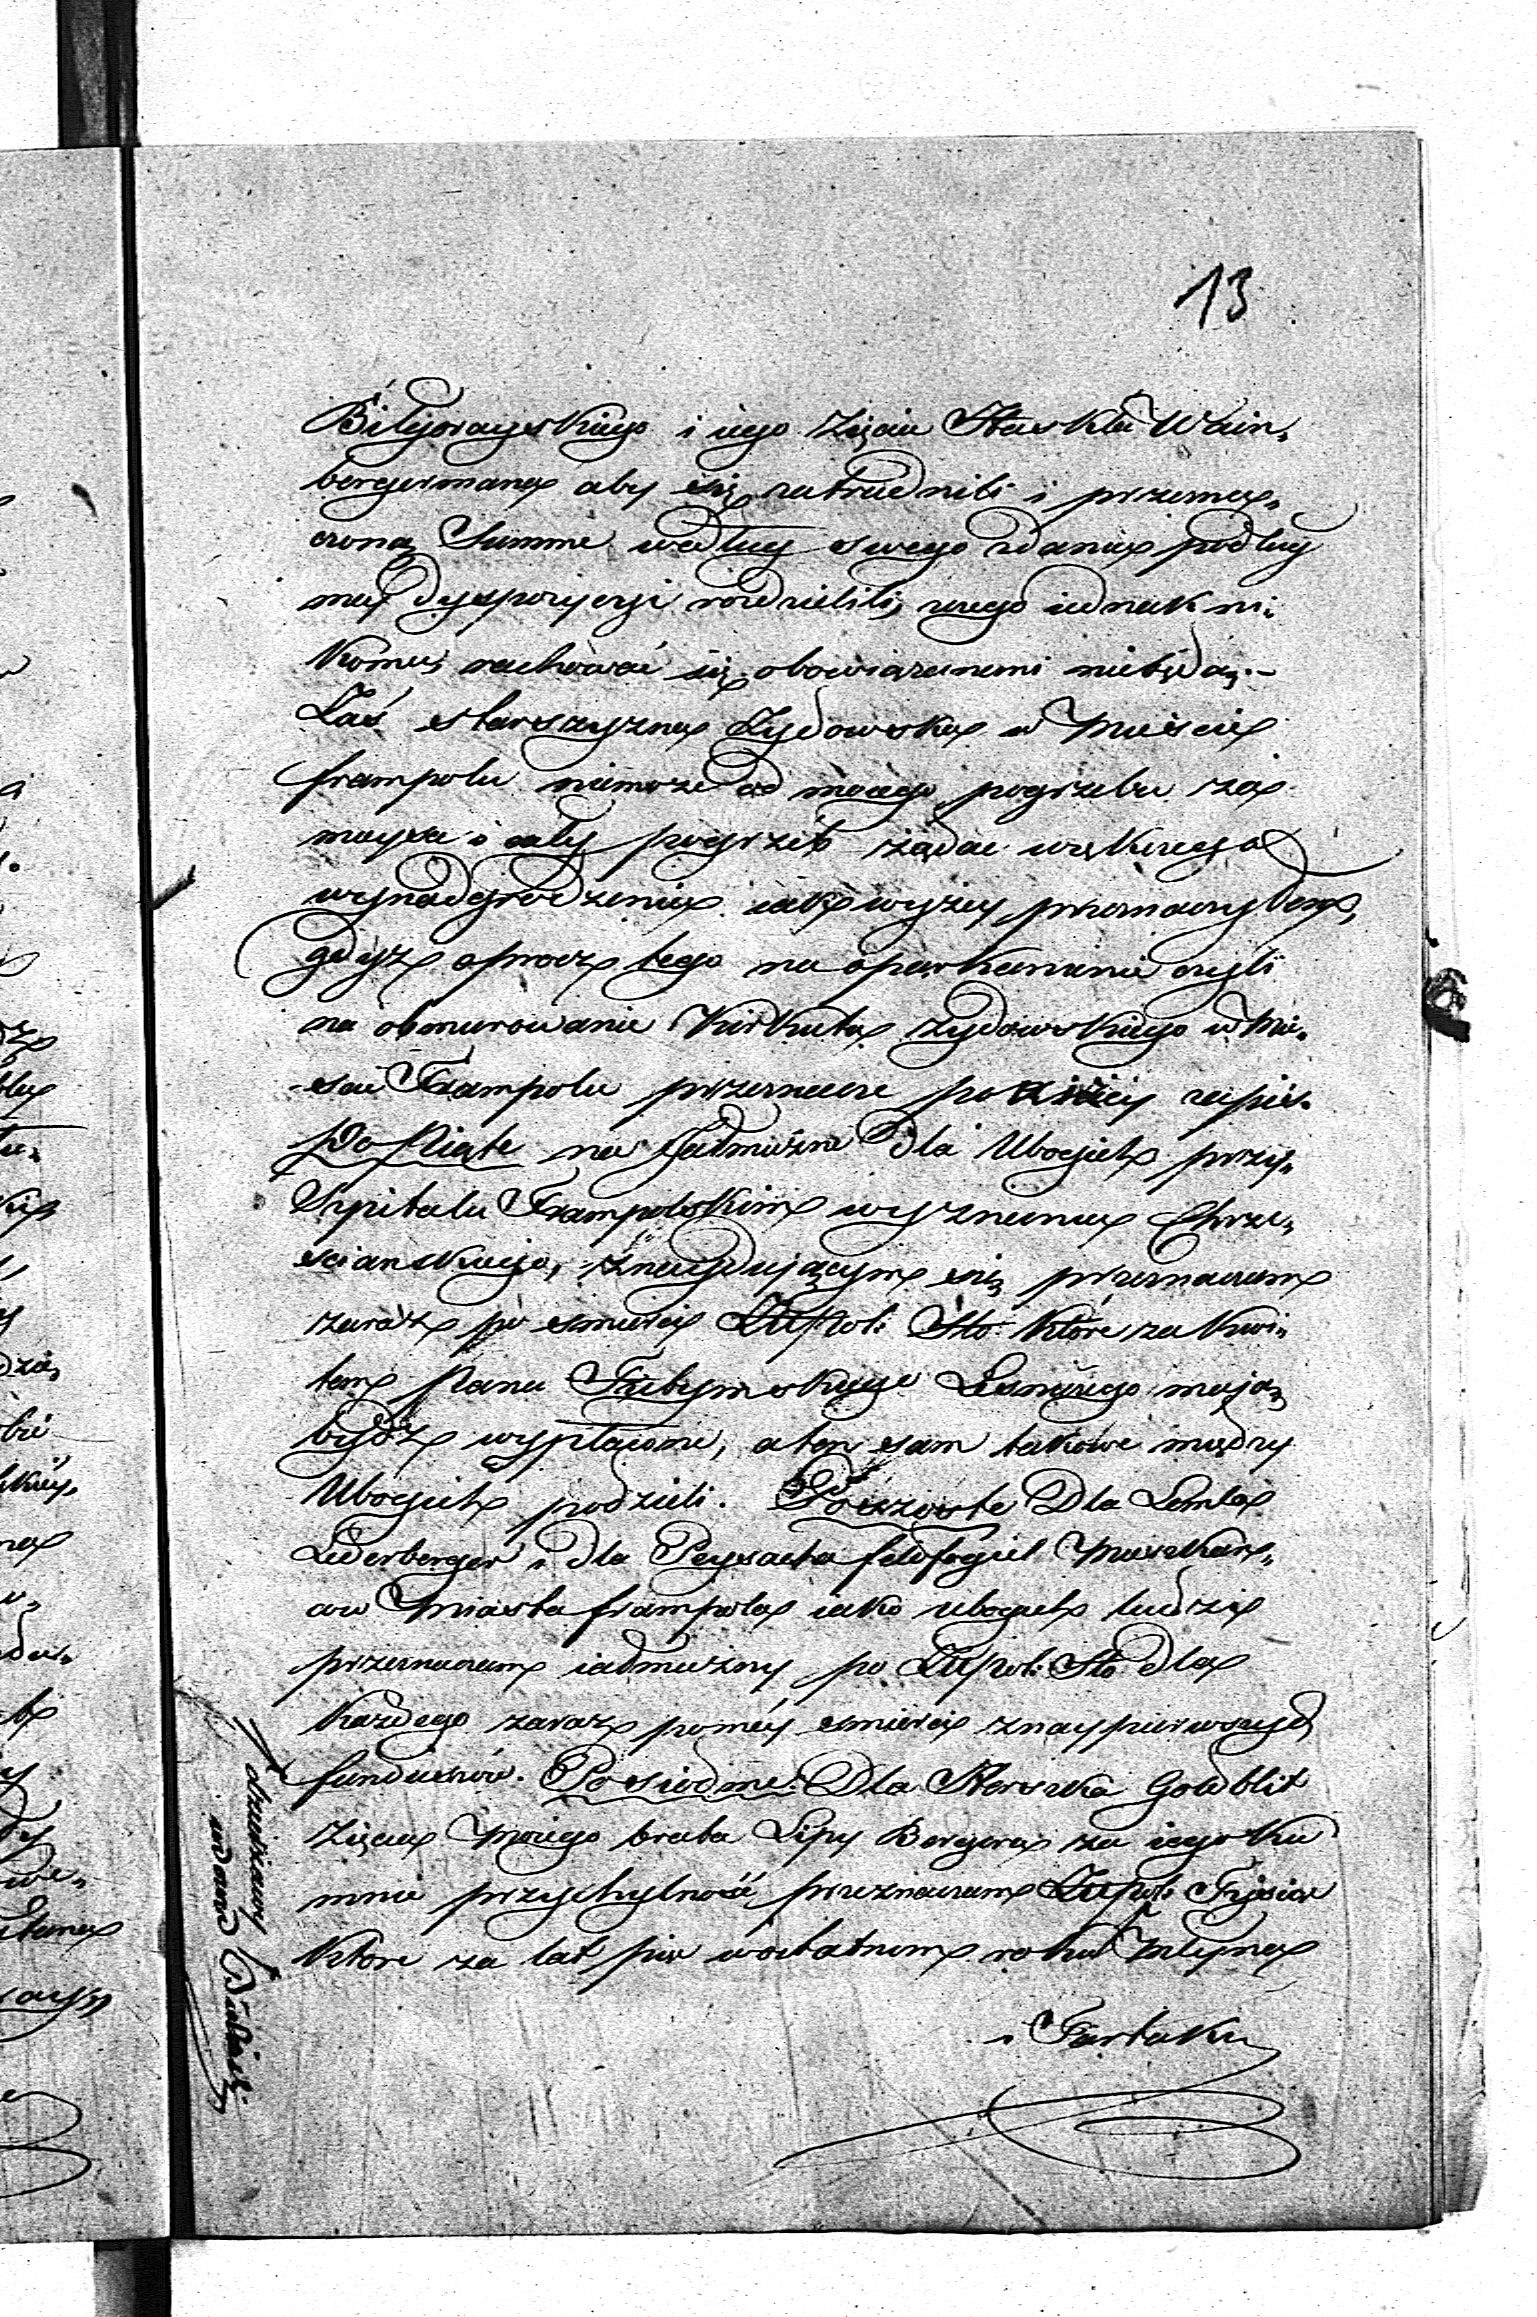 13
Biłgorayskiego i iego Zięcia Herszka Wain„
bergermana aby się zatrudnili i przezna„
czoną Summe według swego zdania podług
mey dyspozycyi rozdzielili, czego iednak ni„
komu, rachować się obowiązanemi niebędą.–
Zaś starszyzna Żydowska w Mieście
frampolu niemoże od mojego pogrzebu za
mayse i cały pogrzeb żądać większego
wynadgrodzenia iak wyżey przeznaczyłem,
gdyż oprocz tego na oparkanienie czyli
na obmurowanie Kirkuta żydowskiego w Mie„
ście Frampolu przeznacze poniżey
Po Piąte na Jałmużne dla Ubogich przy„
Szpitalu Frampolskim wyznania Chrze„
sciańskiego, znaydującym się przeznaczam
zaraz po śmierci Złt pol: Sto. Które za Kwi„
tem Pana Leśniczego mają
bydź wypłacone, a ten sam takowe między
Ubogich podzieli. Po szoste Dla Lemla
Lederberger i dla Peysacha feldfogiel Mieszkań„
ców Miasta frampola iako ubogich ludzi
przeznaczam iałmużny po Złt pol: Sto dla
Każdego zaraz po méy śmierci z naypierwszych
funduszów. Po siodme: Dla Herszka Goldblit
Zięcia Mojego brata Lipy Bergera za iego Ku
mnie przychylność przeznaczam Złt pol: Tysiac
Które za lat pięc w ostatnim roku z Młyna
i Tartaku